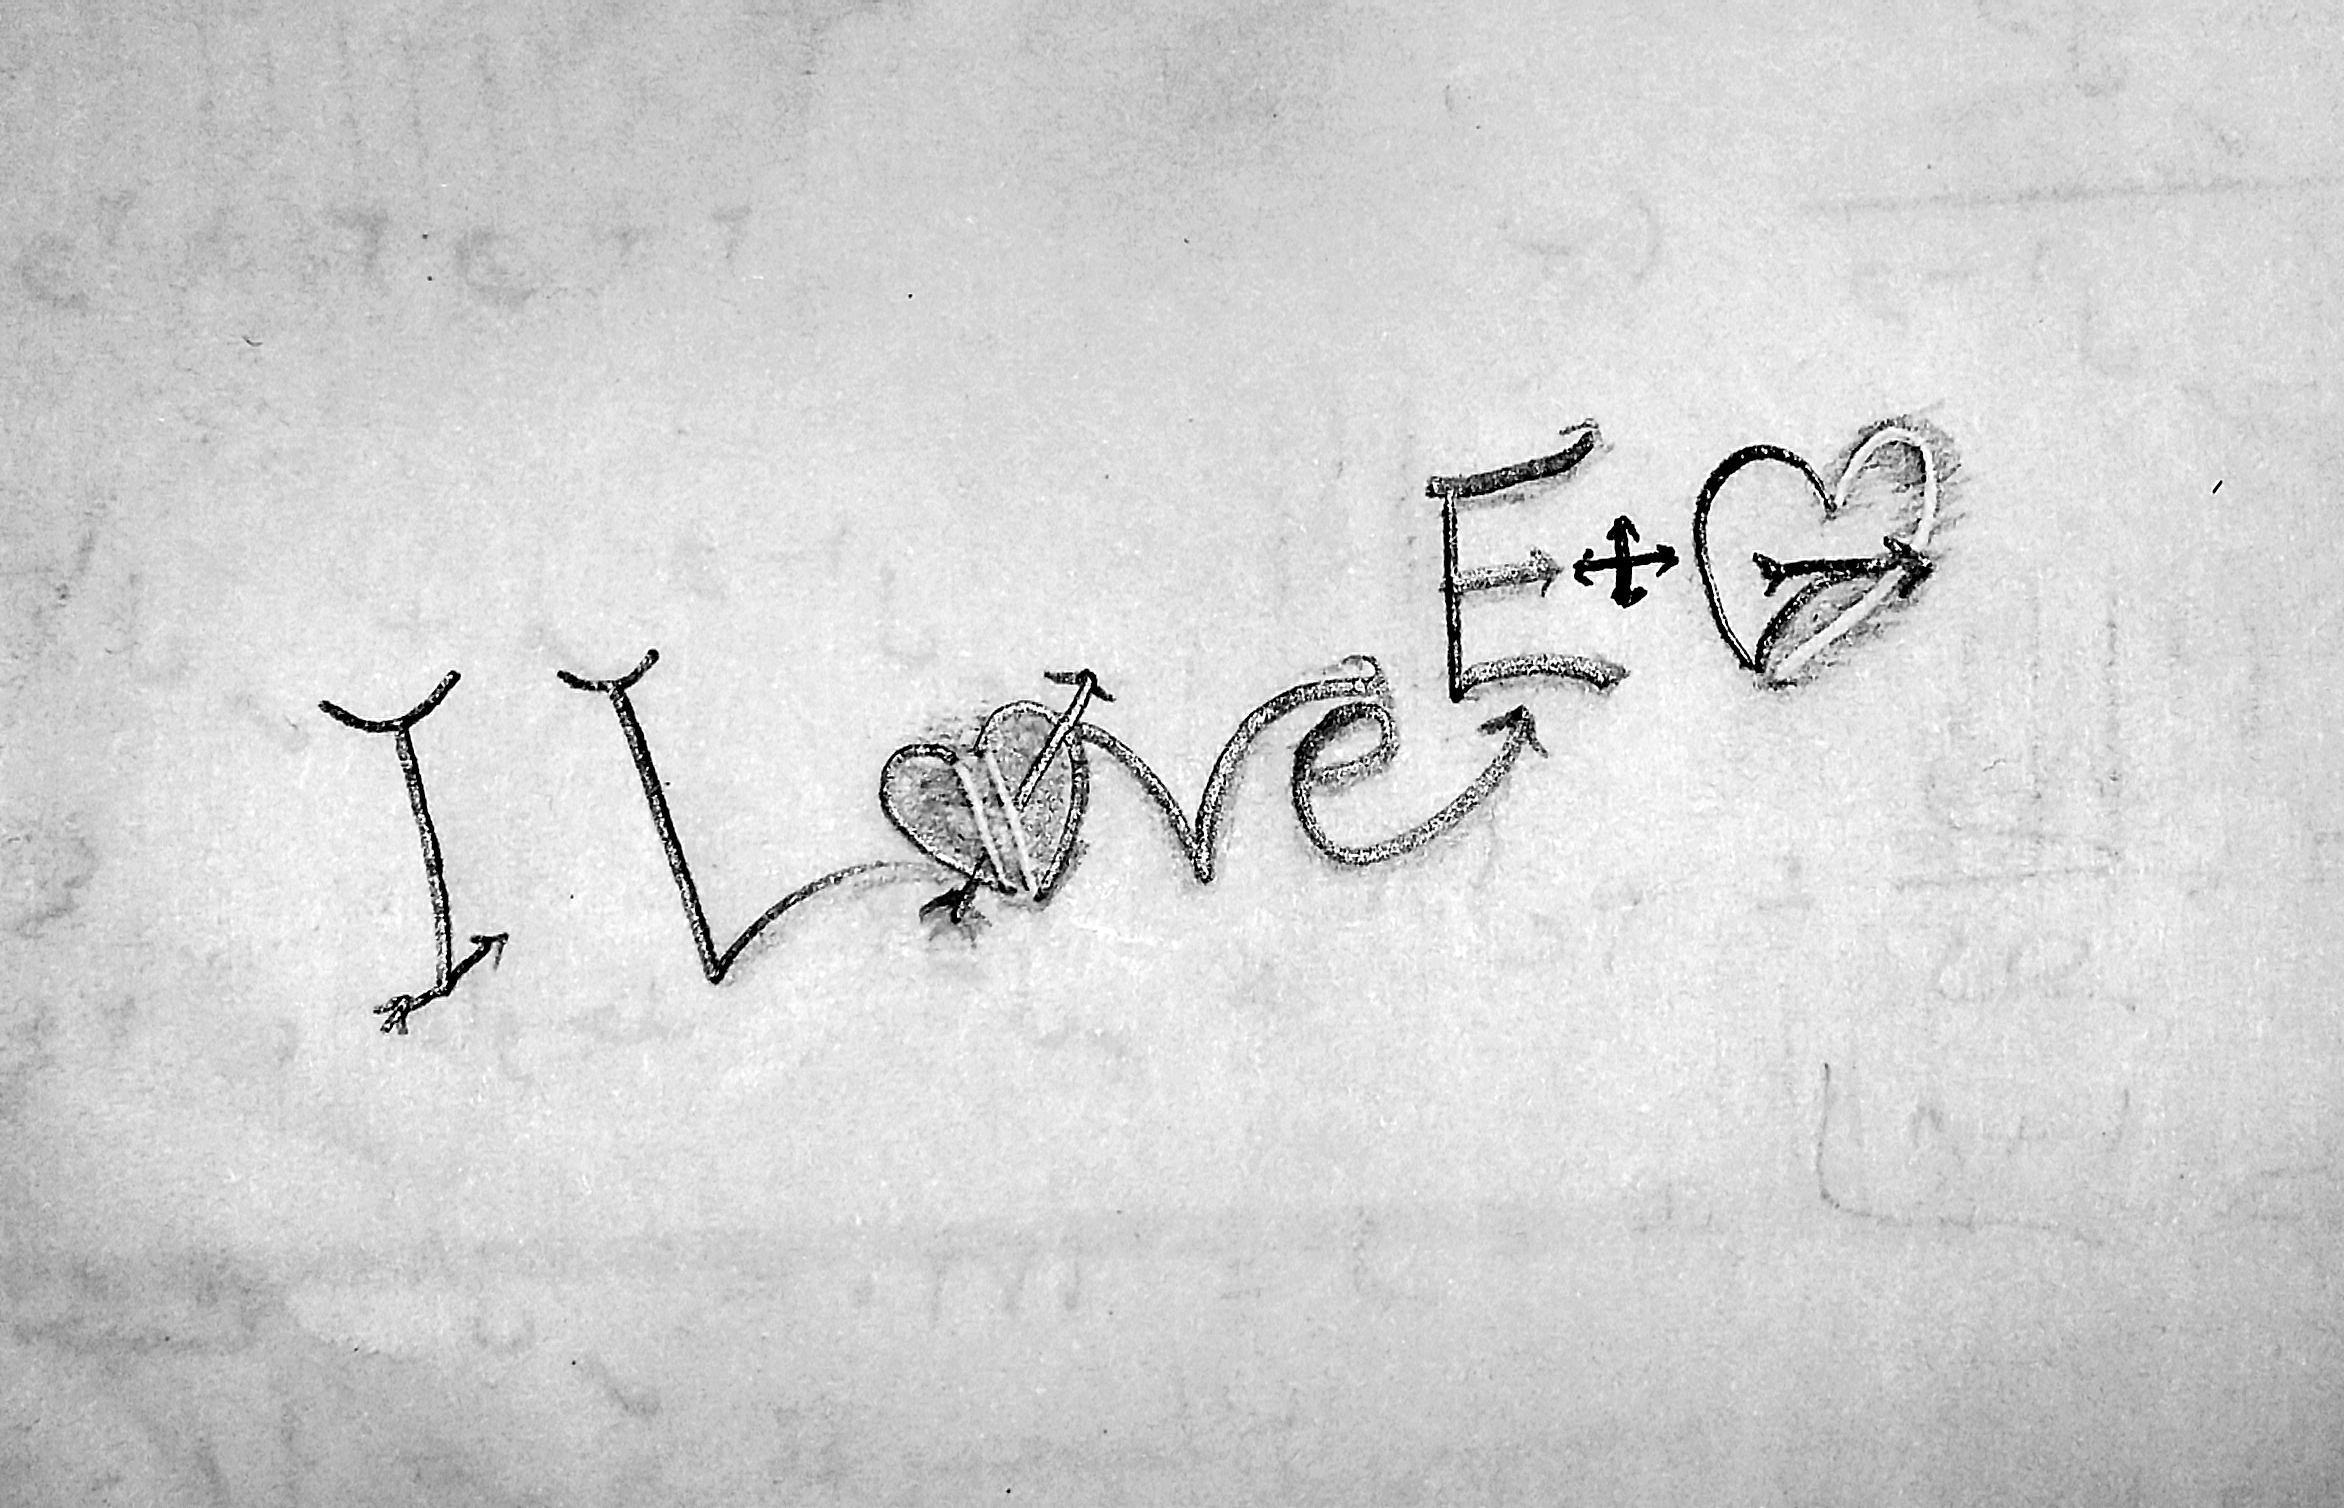 I Love E+G